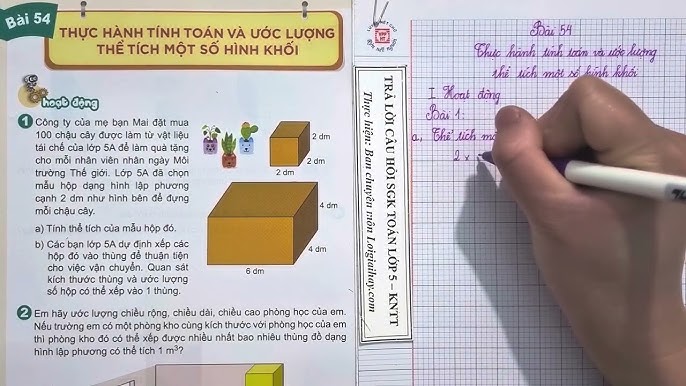 Bài 54
THỰC HÀNH TÍNH TOÁN VÀ ƯỚC LƯỢNG
THỂ TÍCH MỘT SỐ HÌNH KHỐI
hoạt động
1 Công ty của mẹ bạn Mai đặt mua
100 chậu cây được làm từ vật liệu
tái chế của lớp 5A để làm quà tặng
cho mỗi nhân viên nhân ngày Môi
trường Thế giới. Lớp 5A đã chọn
mẫu hộp dạng hình lập phương
cạnh 2 dm như hình bên để đựng
mỗi chậu cây.
a) Tính thể tích của mẫu hộp đó.
b) Các bạn lớp 5A dự định xếp các
hộp đó vào thùng để thuận tiện
cho việc vận chuyển. Quan sát
kích thước thùng và ước lượng
số hộp có thể xếp vào 1 thùng.
2 dm
2 dm
2 dm
4 dm
4 dm
6 dm
2 Em hãy ước lượng chiều rộng, chiều dài, chiều cao phòng học của em.
Nếu trường em có một phòng kho cùng kích thước với phòng học của em
thì phòng kho đó có thể xếp được nhiều nhất bao nhiêu thùng đồ dạng
hình lập phương có thể tích 1 m³?
TRẢ LỜI CÂU HỎI SGK TOÁN LỚP 5 – KNTT
Thực hiện: Ban chuyên môn Loigiaihay.com
Bài 54
Thực hành tính toán và ước lượng
thể tích một số hình khối
I. Hoạt động
Bài 1:
a, Thể tích
2 ×